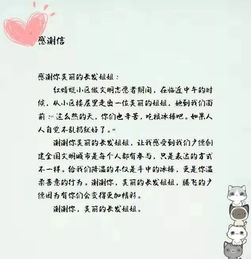 感谢信
感谢你美丽的长发姐姐：
红蜻蜓小区做文明志愿者期间，在临近中午的
时候，从小区楼层里走出一位美丽的姐姐，她到我们面
前："这么热的天，你们也辛苦，吃根冰棒吧。如果人
人自觉不乱扔就好了。"
谢谢你美丽的长发姐姐，让我感受到我们户德创
建全国文明城市是每个人都有参与，只是表达的方式
不一样。给我们降温的不仅是手中的冰棒，更是你温
柔善意的行为。谢谢你，美丽的长发姐姐，腾飞的户
德因为有你们会变得更加精彩。
谢谢你，美丽的长发姐姐。